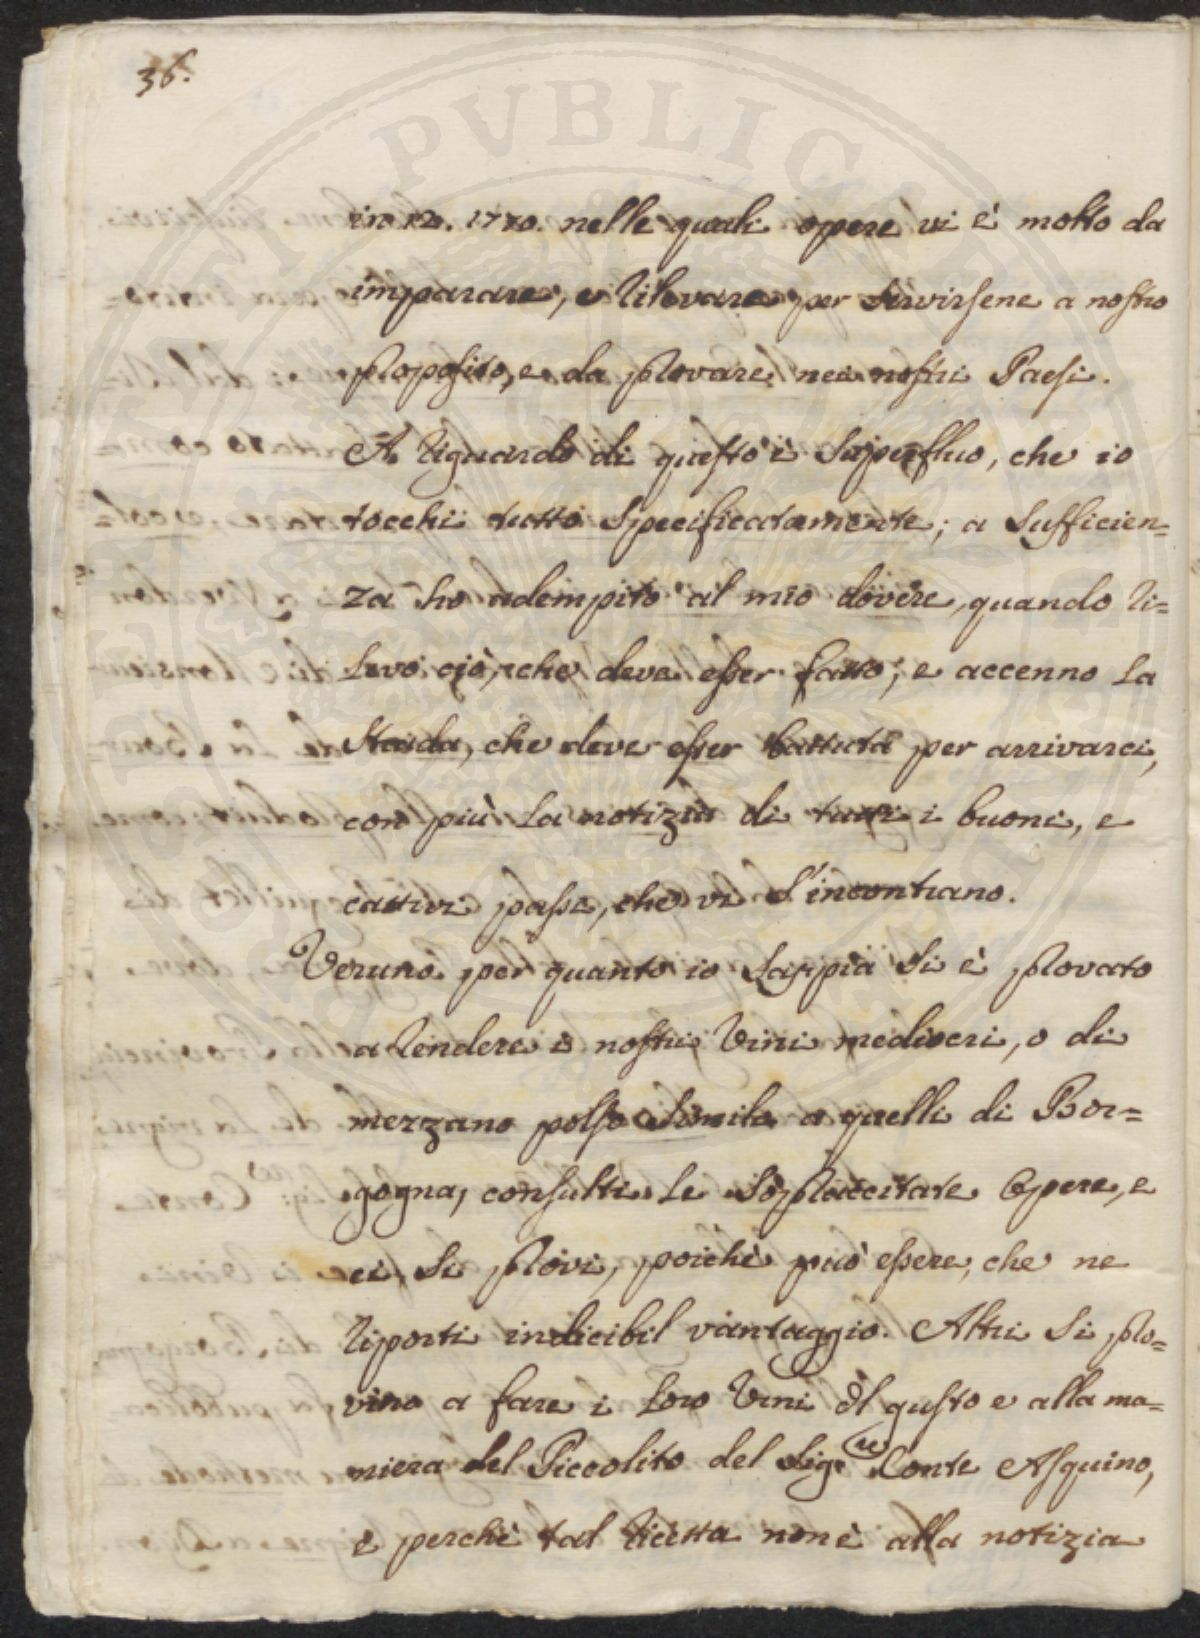 36.
in 12. 1770. nelle quali opere vi è molto da
imparare, e rilevare per servirsene a nostro
proposito, e da provare nei nostri Paesi.
A riguardo di questo è superfluo, che io
tocchi tutto specificatamente; a sufficien=
za ho adempito al mio dovere, quando ri=
levo ciò, che deve esser fatto; e accenno la
strada, che deve esser battuta per arrivarci,
con più la notizia di tutti i buoni, e
cattivi passi, che vi s'incontrano.
Veruno per quanto io sappia si è provato
a rendere i nostri Vini mediocri, o di
mezzano polso simile a quelli di Bor=
gogna, consulti le sopraccitate Opere, e
ci si provi, poichè può essere, che ne
riporti indicibil vantaggio. Altri si pro=
vino a fare i loro Vini al gusto e alla ma=
niera del Piccolito del Sig.re Conte Asquino,
e perchè tal ricetta non è alla notizia
PVBLICAE